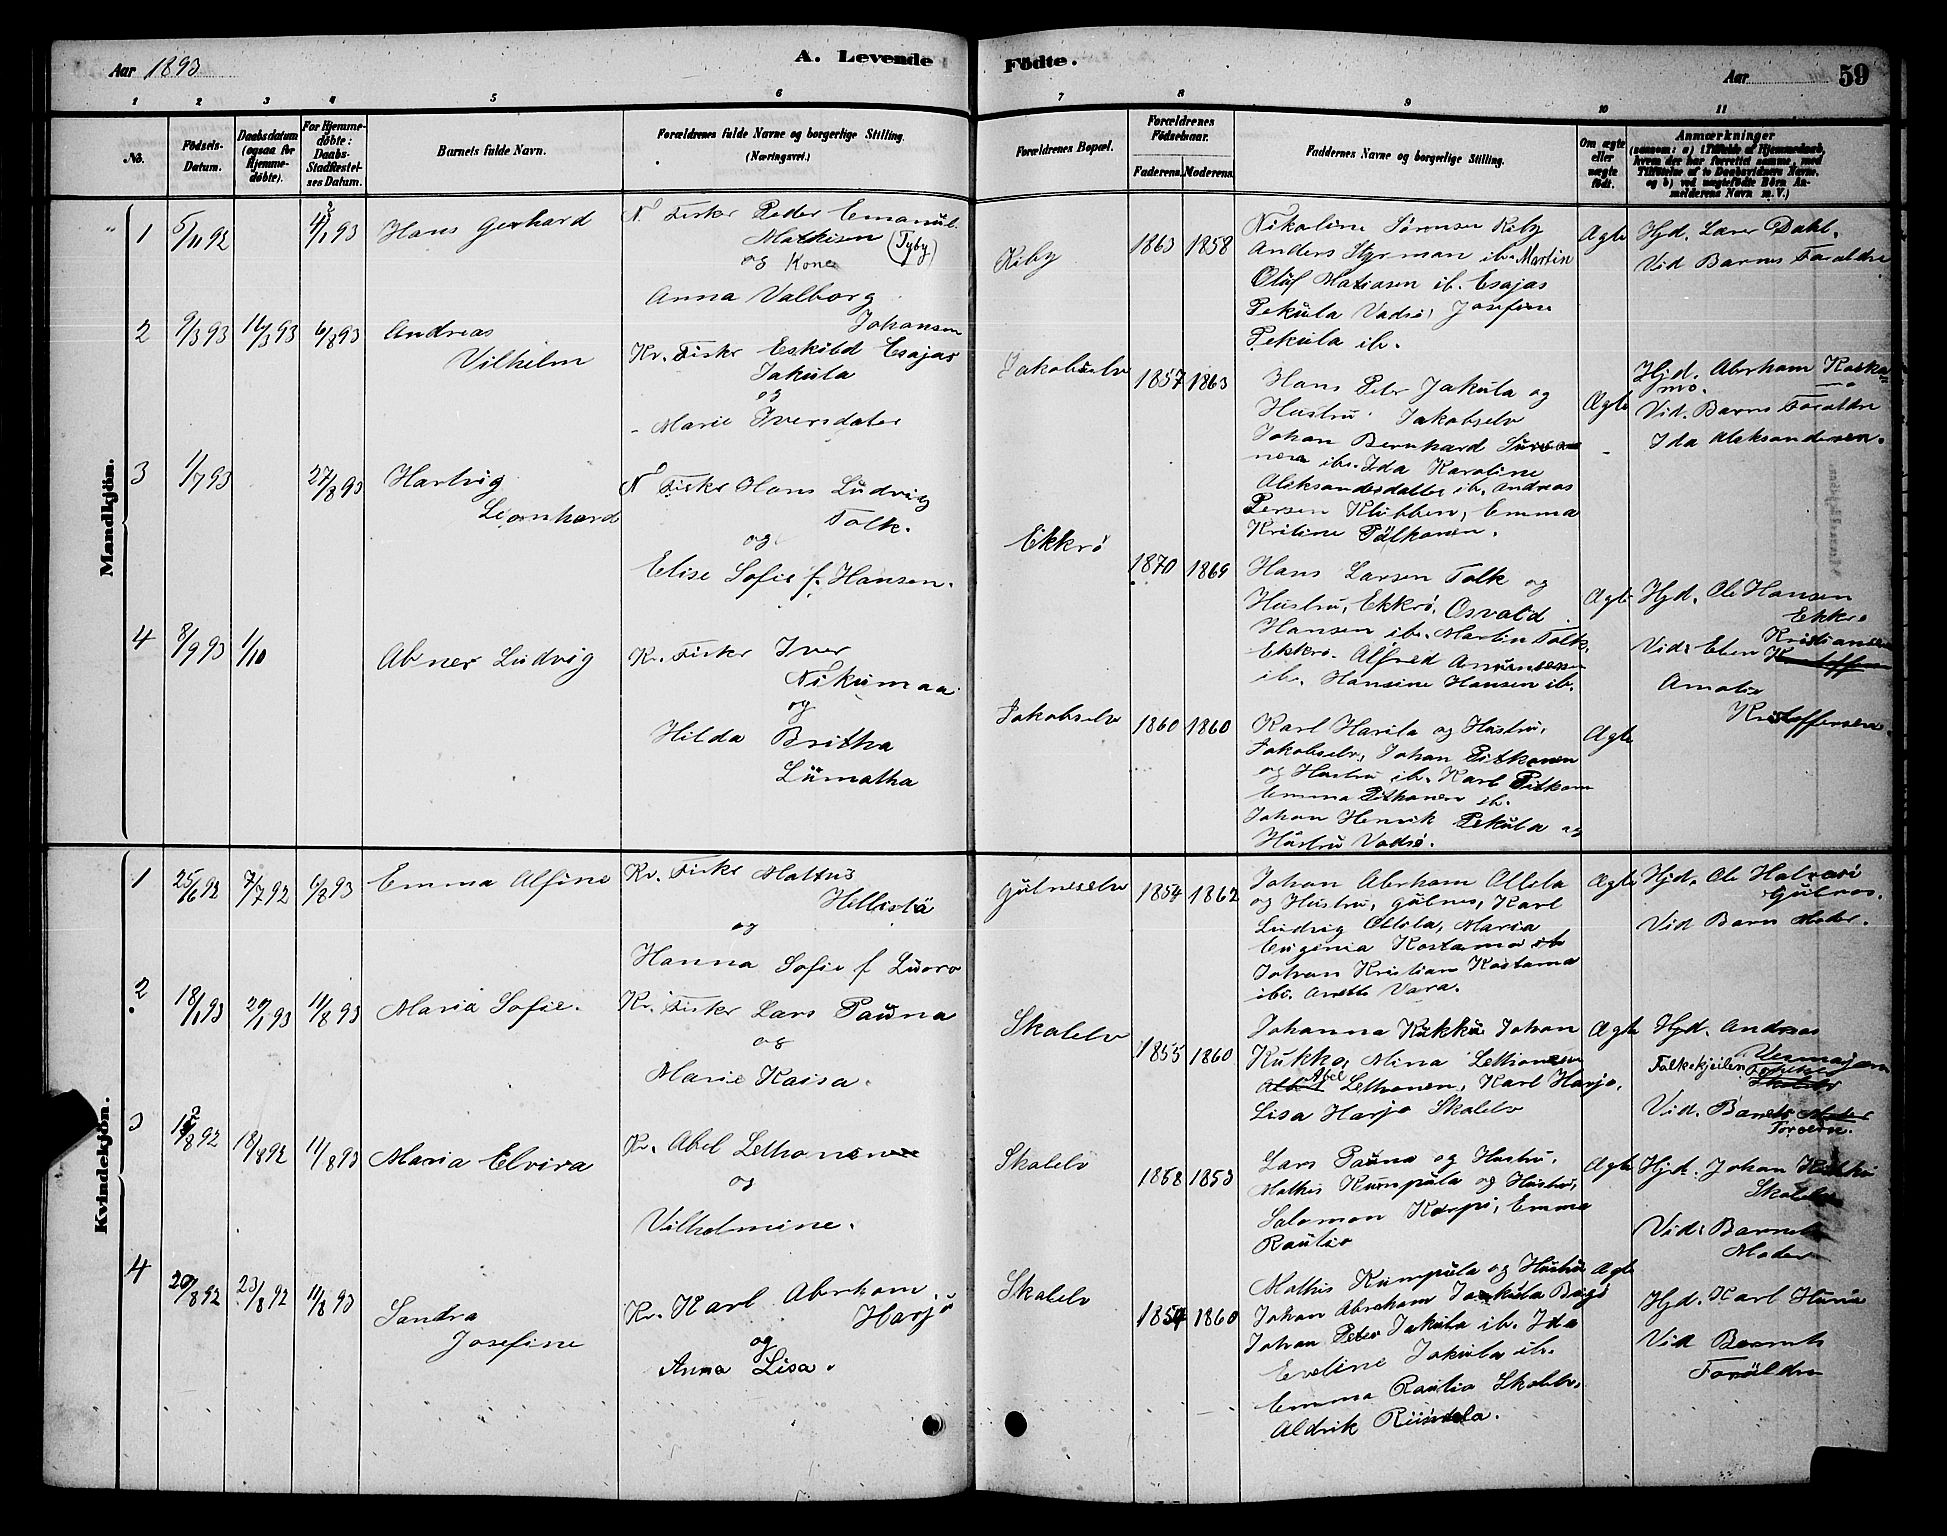 Aar 1893
A. Levende
Födte.
Aar
59
1 2 3 4 5 6 7 8 9 10 11
No.
Födsels-
Datum.
Daabsdatum
(ogsaa for
Hjemme-
döbte).
For Hjemme-
döbte:
Daabs-
Stadfæstel-
ses Datum.
Barnets fulde Navn.
Forældrenes fulde Navne og borgerlige Stilling.
(Næringsvei.)
Forældrenes Bopæl.
Forældrenes
Födselsaar.
Faderens. Moderens.
Faddernes Navne og borgerlige Stilling.
Om ægte
eller
uægte
födt.
Anmærkninger
(saasom: a) i Tilfælde af Hjemmedaab,
hvem der har forrettet samme, med
Tilföielse af to Daabsvidners Navne.
og b) ved uægtefödte Börn An-
melderens Navn m.V.)
Mandkjön.
1
5/11 92
Hans Gerhard
N Fisker Peder Emanuel
Mathisen (Tyby)
og Kone
Anna Valborg
Johansen
Kiby
1863 1858
Nikoline Sørensen Kiby
Anders Styrman ib. Martin
Oluf Matiasen ib. Esajas
Pekula Vadsø, Josefine
Pekula ib.
Ægte
Hjd. Lærer Dahl.
Vid Barns Foraldre
2
9/3 93
16/3 93
6/8 93
Andreas
Vilhelm
Kv. Fisker Eskild Esajas
Jakula
og
Marie Iversdater
Jakobselv
1857 1863
Hans Peter Jakula og
Hustru Jakobselv
Johan Bernhard
ib. Ida Karoline
Aleksandersdatter ib. Andreas
Persen Klubben, Emma
Kristine Palkonen.
Ægte
Hjd. Aberham Koska=
mo.
Vid. Barns Foraldre
Ida Aleksandersen.
3
1/7 93
27/8 93
Hartvig
Leonhard
N Fisker Hans Ludvig
Falk.
og
Elise Sofie f. Hansen.
Ekkrö
1870 1869
Hans Larsen Falk og
Hustru, Ekkrö. Osvald
Hansen ib. Martin Falk
Ekkrö. Alfred Amundsen
ib. Hansine Hansen ib.
Ægte
Hjd. Ole Hansen
Ekkrö
Vid: Eben Kristiansen
Amalie
Kristoffersen.
4
8/9 93
1/10
Abner Ludvig
Kv. Fisker Iver
Nikumaa
og
Hilda Britha
Lumatha
Jakobselv
1860 1860
Karl Harila og Hustru,
Jakobselv, Johan Pitkonen
og Hustru ib. Karl Pitkonen
Emma Pitkonen ib.
Johan Henrik Pekula og
Hustru Vadsö.
Ægte
Kvindekjön.
1
25/6 92
7/7 92
6/8 93
Emma Alfine
Kv. Fisker Mattus
Hellistä
og
Hanna Sofie f Luoro
Gulneselv
1854 1862
Johan Aberham Ollila
og Hustru, Gulnes, Karl
Ludvig Ollila, Maria
Eugenia Kostama ib
Johan Kristian Kostama
ib. Anette Vara.
Ægte
Hjd. Ole Halvari
Gulnes.
Vid Barn Moder.
2
18/1 93
29/1 93
11/8 93
Maria Sofie.
Kv. Fisker Lars Pauna
og
Marie Kaisa.
Skalelv
1855 1860
Johanna Kukko Johan
Kukko, Mina Lethonen
Abel Lethonen, Karl Harjo,
Lisa Harjo Skalelv
Ægte
Hjd. Andreas
Falkekjeilen
Vid. Barnets Moder
3
18/92
18/8 92
11/8 93
Maria Elvira
Kv. Abel Lethonen
og
Vilhelmine.
Skalelv
1858 1853
Lars Pauna og Hustru,
Mathis Kumpula og Hustru,
Salomon Karpi, Emma
Rautio
Ægte
Hjd. Johan Kukko
Skalelv
Vid: Barnets
Moder
4
20/8 92
23/8 92
11/8 93
Sandra
Josefine
Kv. Karl Aberham
Harjo
og
Anna Lisa.
Skalelv
1854 1860
Mathis Kumpula og Hustru
Johan Abraham Jakula
Johan Peter Jakula ib. Ida
Eveline Jakula ib.
Emma Rautio Skalelv.
Aldrik
Ægte
Hjd. Karl
Vid Barnets
Foräldre